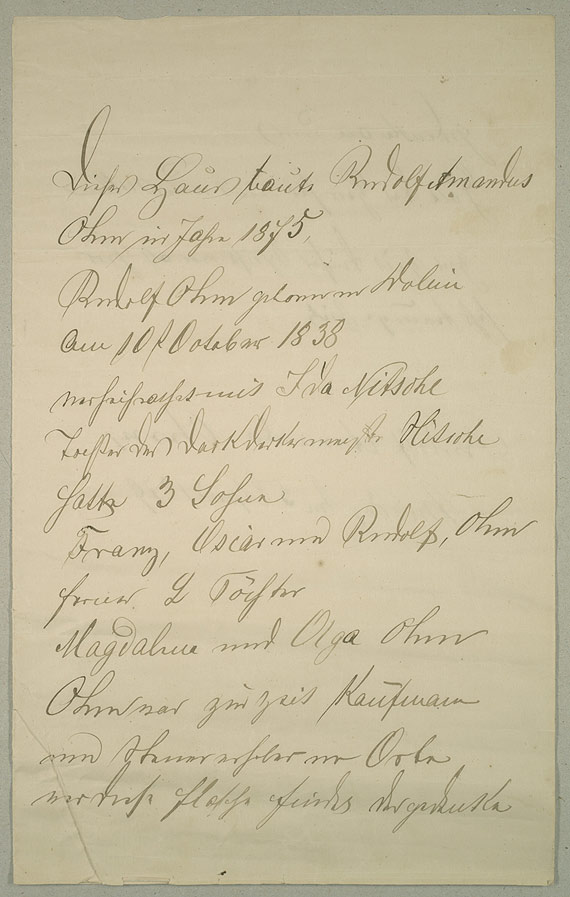 Dieses Haus baute Rudolf Amandus
Ohm im Jahre 1875,
Rudolf Ohm geboren in Wolin
am 10t October 1838
verheirathet mit Ida Nitsche
Tochter des Nitsche
hatte 3 Söhne
Franz, Oscar und Rudolf, Ohm
ferner 2 Töchter
Magdalena und Olga Ohm
Ohm war zur Zeit Kaufmann
und Steuererheber im Orte
wer diese Flasche findet der gedenke